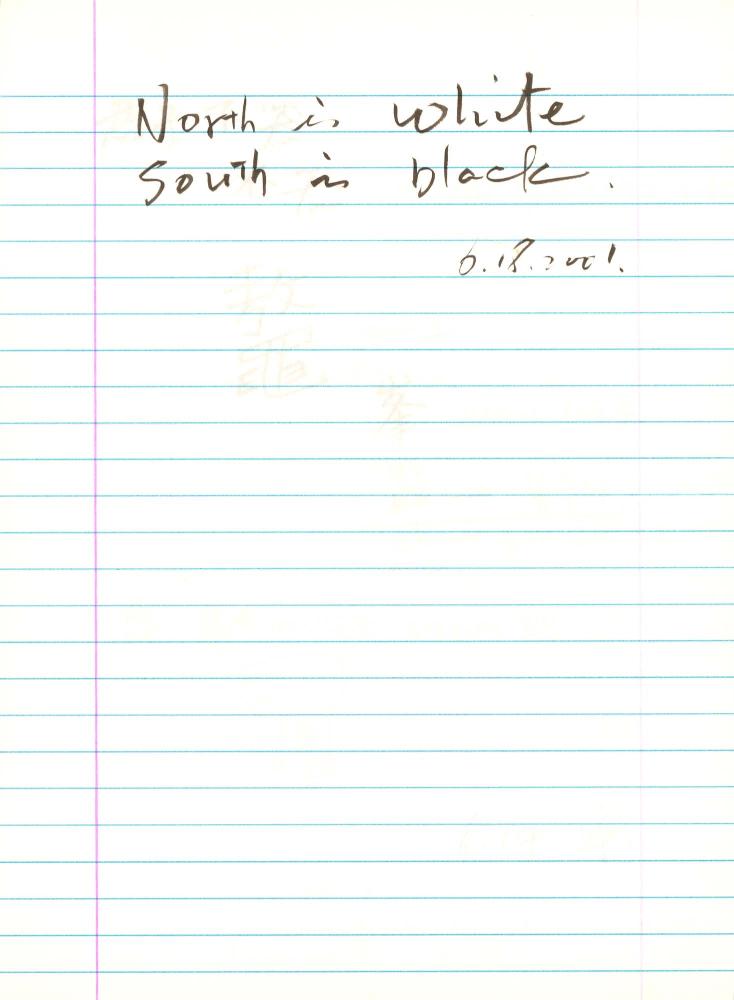 North is white
South is black.
6.18.2001.